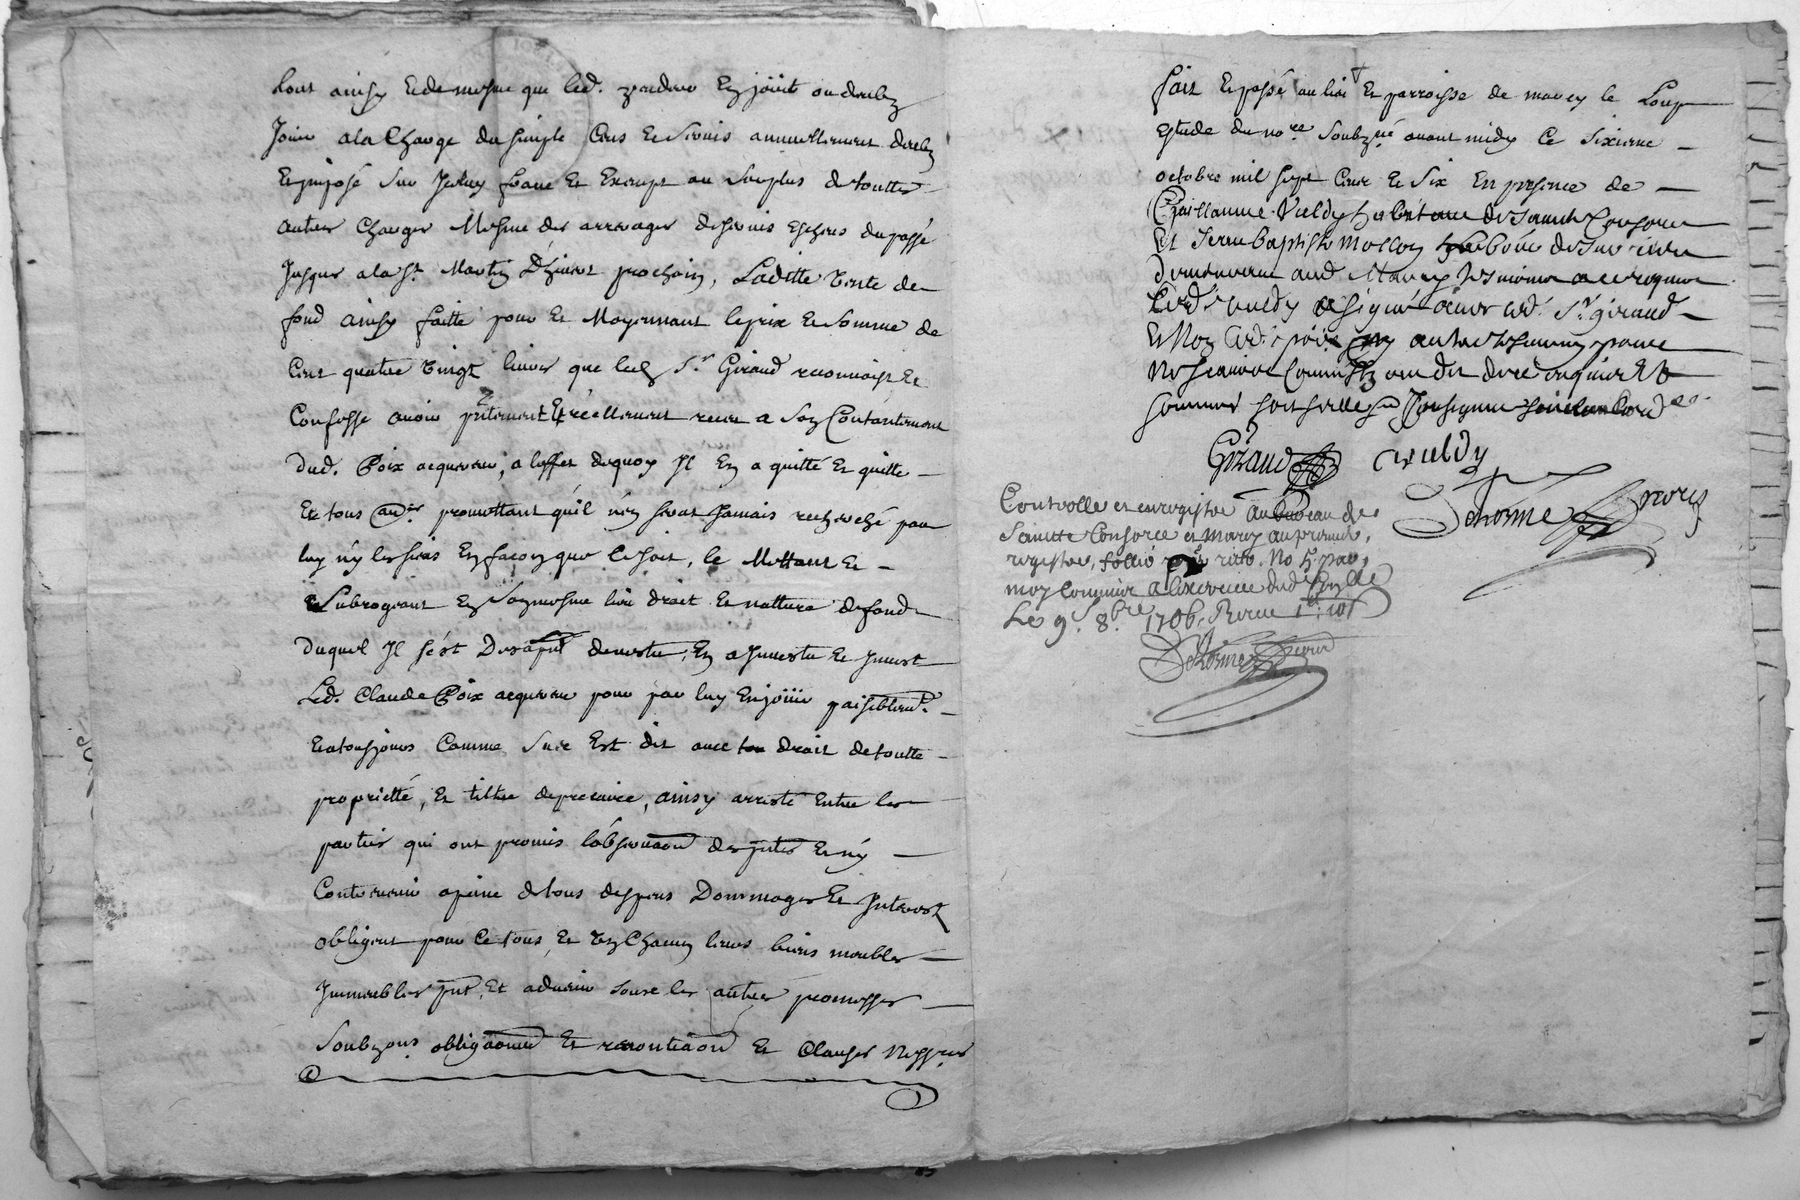 tout ainsy et de mesme que led. vendeur en joüit ou deub
Jouir a la Charge du simple Cens et servis annuellement deub
et imposé sur Iceluy franc et Exempt au surplus de touttes
autres Charges Mesme des arrerages de servis escheus du passé
Jusques a la St. Martin D'hiver prochain, Laditte vente de
fond ainsy faitte pour et Moyennant le prix et somme de
Cent quatre vingt livres que led. Sr. Giraud reconnoist et
Confesse avoir pñtement et réellement receu a son Contantement
dud. Poix acquereur, a leffet dequoy Il En a quitté et quitte
Et tous autres promettant qu'il n'en serat Jamais recherché par
luy n'y les siens En façon que ce soit, le Mettant et
subrogeant En son mesme lieu droit et natture de fond
duquel Il s'est Desaysi devestu, En a Investu et Invest
Led. Claude Poix acquereur pour par luy En joüir paisiblemt.
et a tousjours Comme sus Est dit avec droit de toutte
proprietté, et tiltre de precaire, ainsy arresté Entre les
parties qui ont promis l'observaon des pñtes et n'y
Contrevenir a peine de tous despens Dommages et Interest
obligent pour Ce tous et un Chacun leurs biens meubles
Immeubles pñt. Et advenir sous les autres promesses
Soubzons. obligaons et renontiaon et Clauses Necsres
fait et passé au lieu et parroisse de marcy le Loup
estude du nore. soubzné avant midy Ce sixieme
octobre mil sept Cent et six En presence de
Guillaume Vuldy habitant de sainte Consorce
Et Jean baptiste
demeurant aud Marcy tesmoins a ce requis
Led. vuldy a signé avec led. Sr. giraud
et Non led. poix autre tesmoin pour
ne scavoir Comme Ils ont dit de ce enquis et
sommés soit scellé
Giraud vuldy
Delorme Nores
Controllé et enregistré au bureau de
Sainte Consorce et Marcy au premier
registre, follio ritto. No 5. par
moy Commis a lexercice dud.
Le 9e. 8bre. 1706. Receu
Delorme